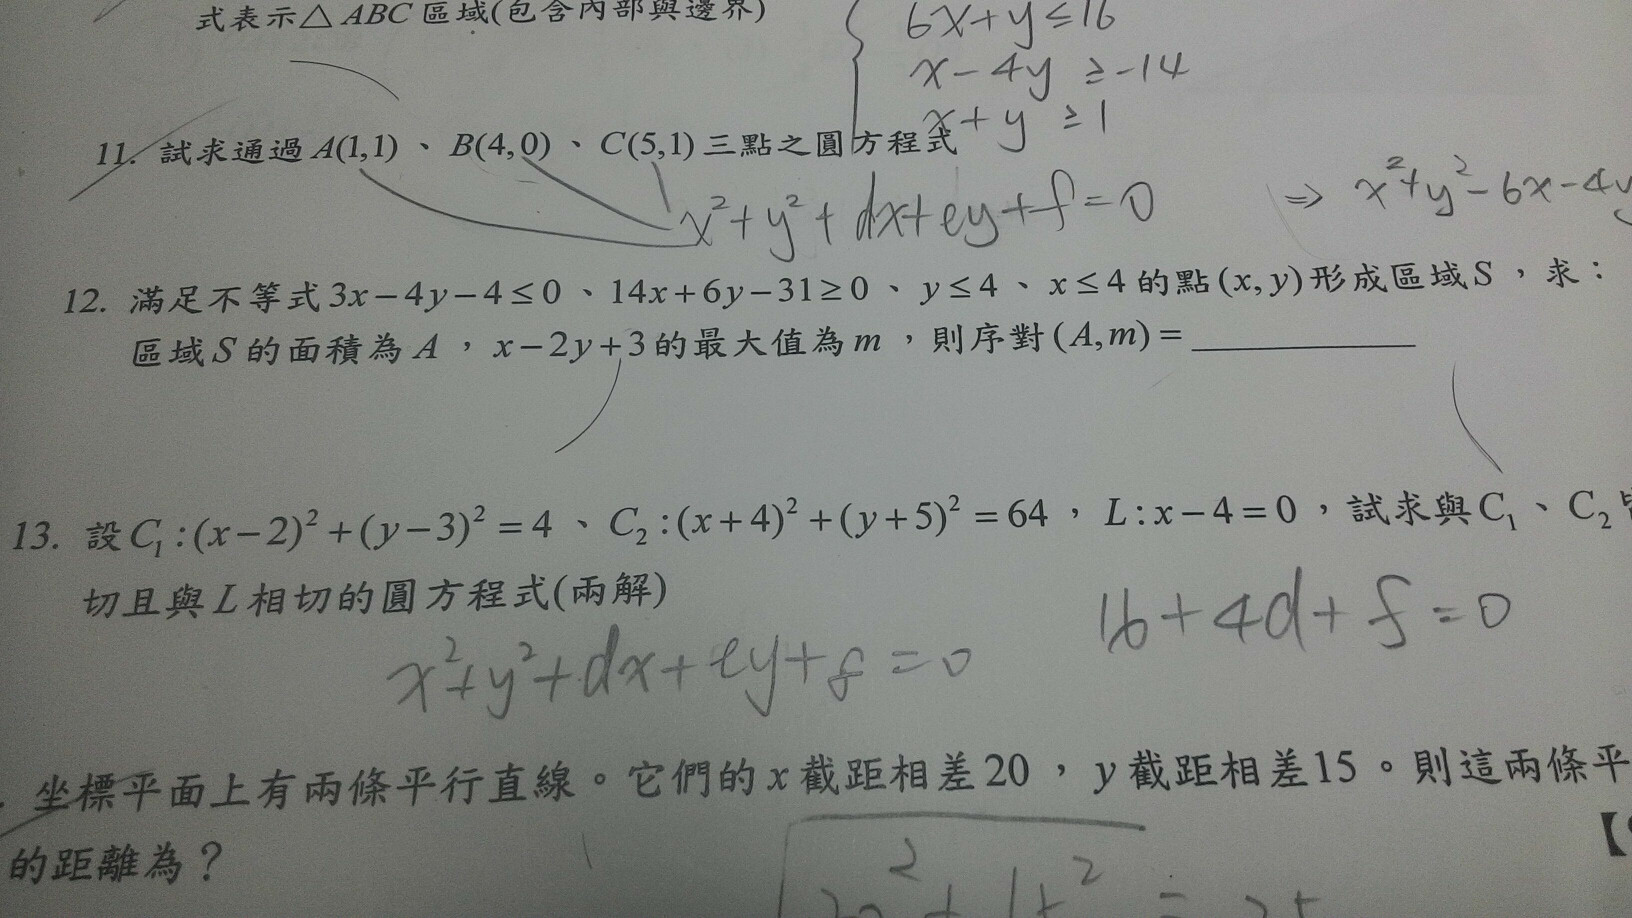 式表示△ABC區域(包含內部與邊界)
6x+y≤16
x-4y≥-14
x+y≥1
11. 試求通過A(1,1)、B(4,0)、C(5,1)三點之圓方程式
x²+y²+dx+ey+f=0
⇒ x²+y²-6x-4y
12. 滿足不等式3x-4y-4≤0、14x+6y-31≥0、y≤4、x≤4的點(x,y)形成區域S，求：
區域S的面積為A，x-2y+3的最大值為m，則序對(A,m)=__________
13. 設C₁:(x-2)²+(y-3)²=4、C₂:(x+4)²+(y+5)²=64，L:x-4=0，試求與C₁、C₂
切且與L相切的圓方程式(兩解)
16+4d+f=0
x²+y²+dx+ey+f=0
坐標平面上有兩條平行直線。它們的x截距相差20，y截距相差15。則這兩條平
的距離為？